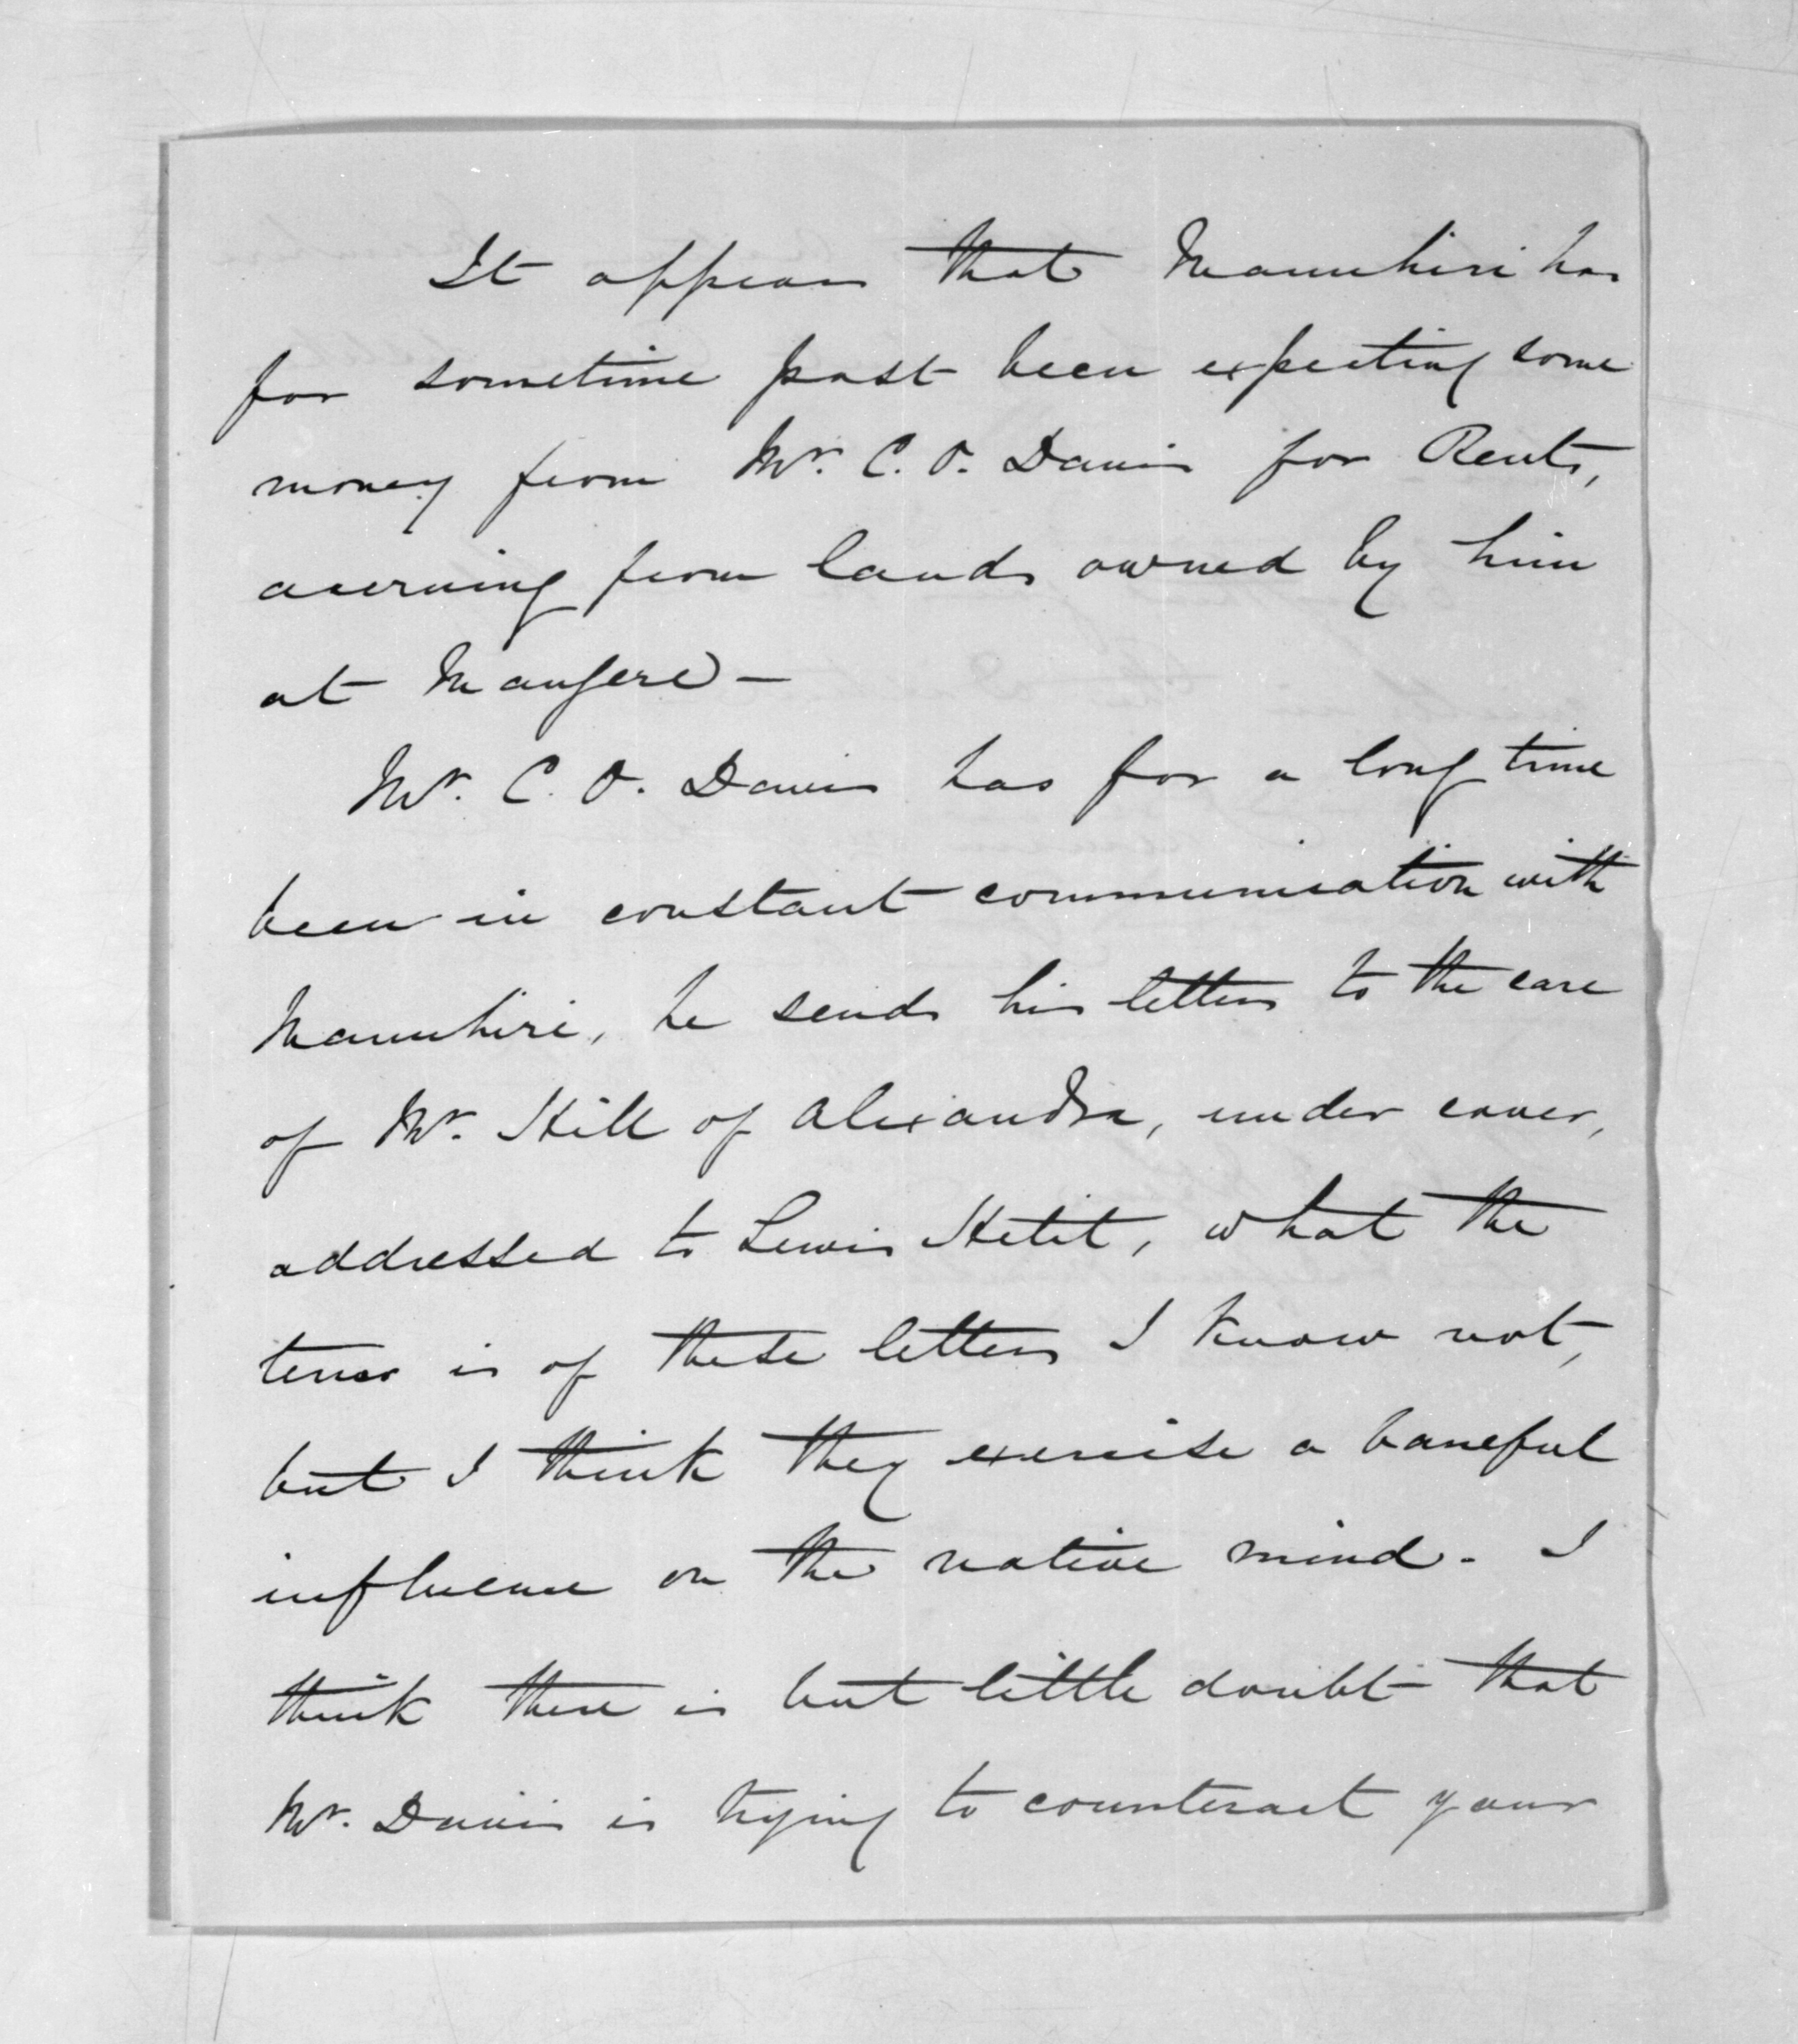 It appears that Manuhiri has
for sometime past been expecting some
money from Mr. C. O. Davis for Rents,
accruing from lands owned by him
at Mangere —
Mr. C. O. Davis has for a long time
been in constant communication with
Manuhiri, he sends his letters to the care
of Mr. Hill of Alexandra, under cover,
addressed to Lewis Hetit, what the
tenor is of these letters I know not,
but I think they exercise a baneful
influence on the native mind. I
think there is but little doubt that
Mr. Davis is trying to counteract your